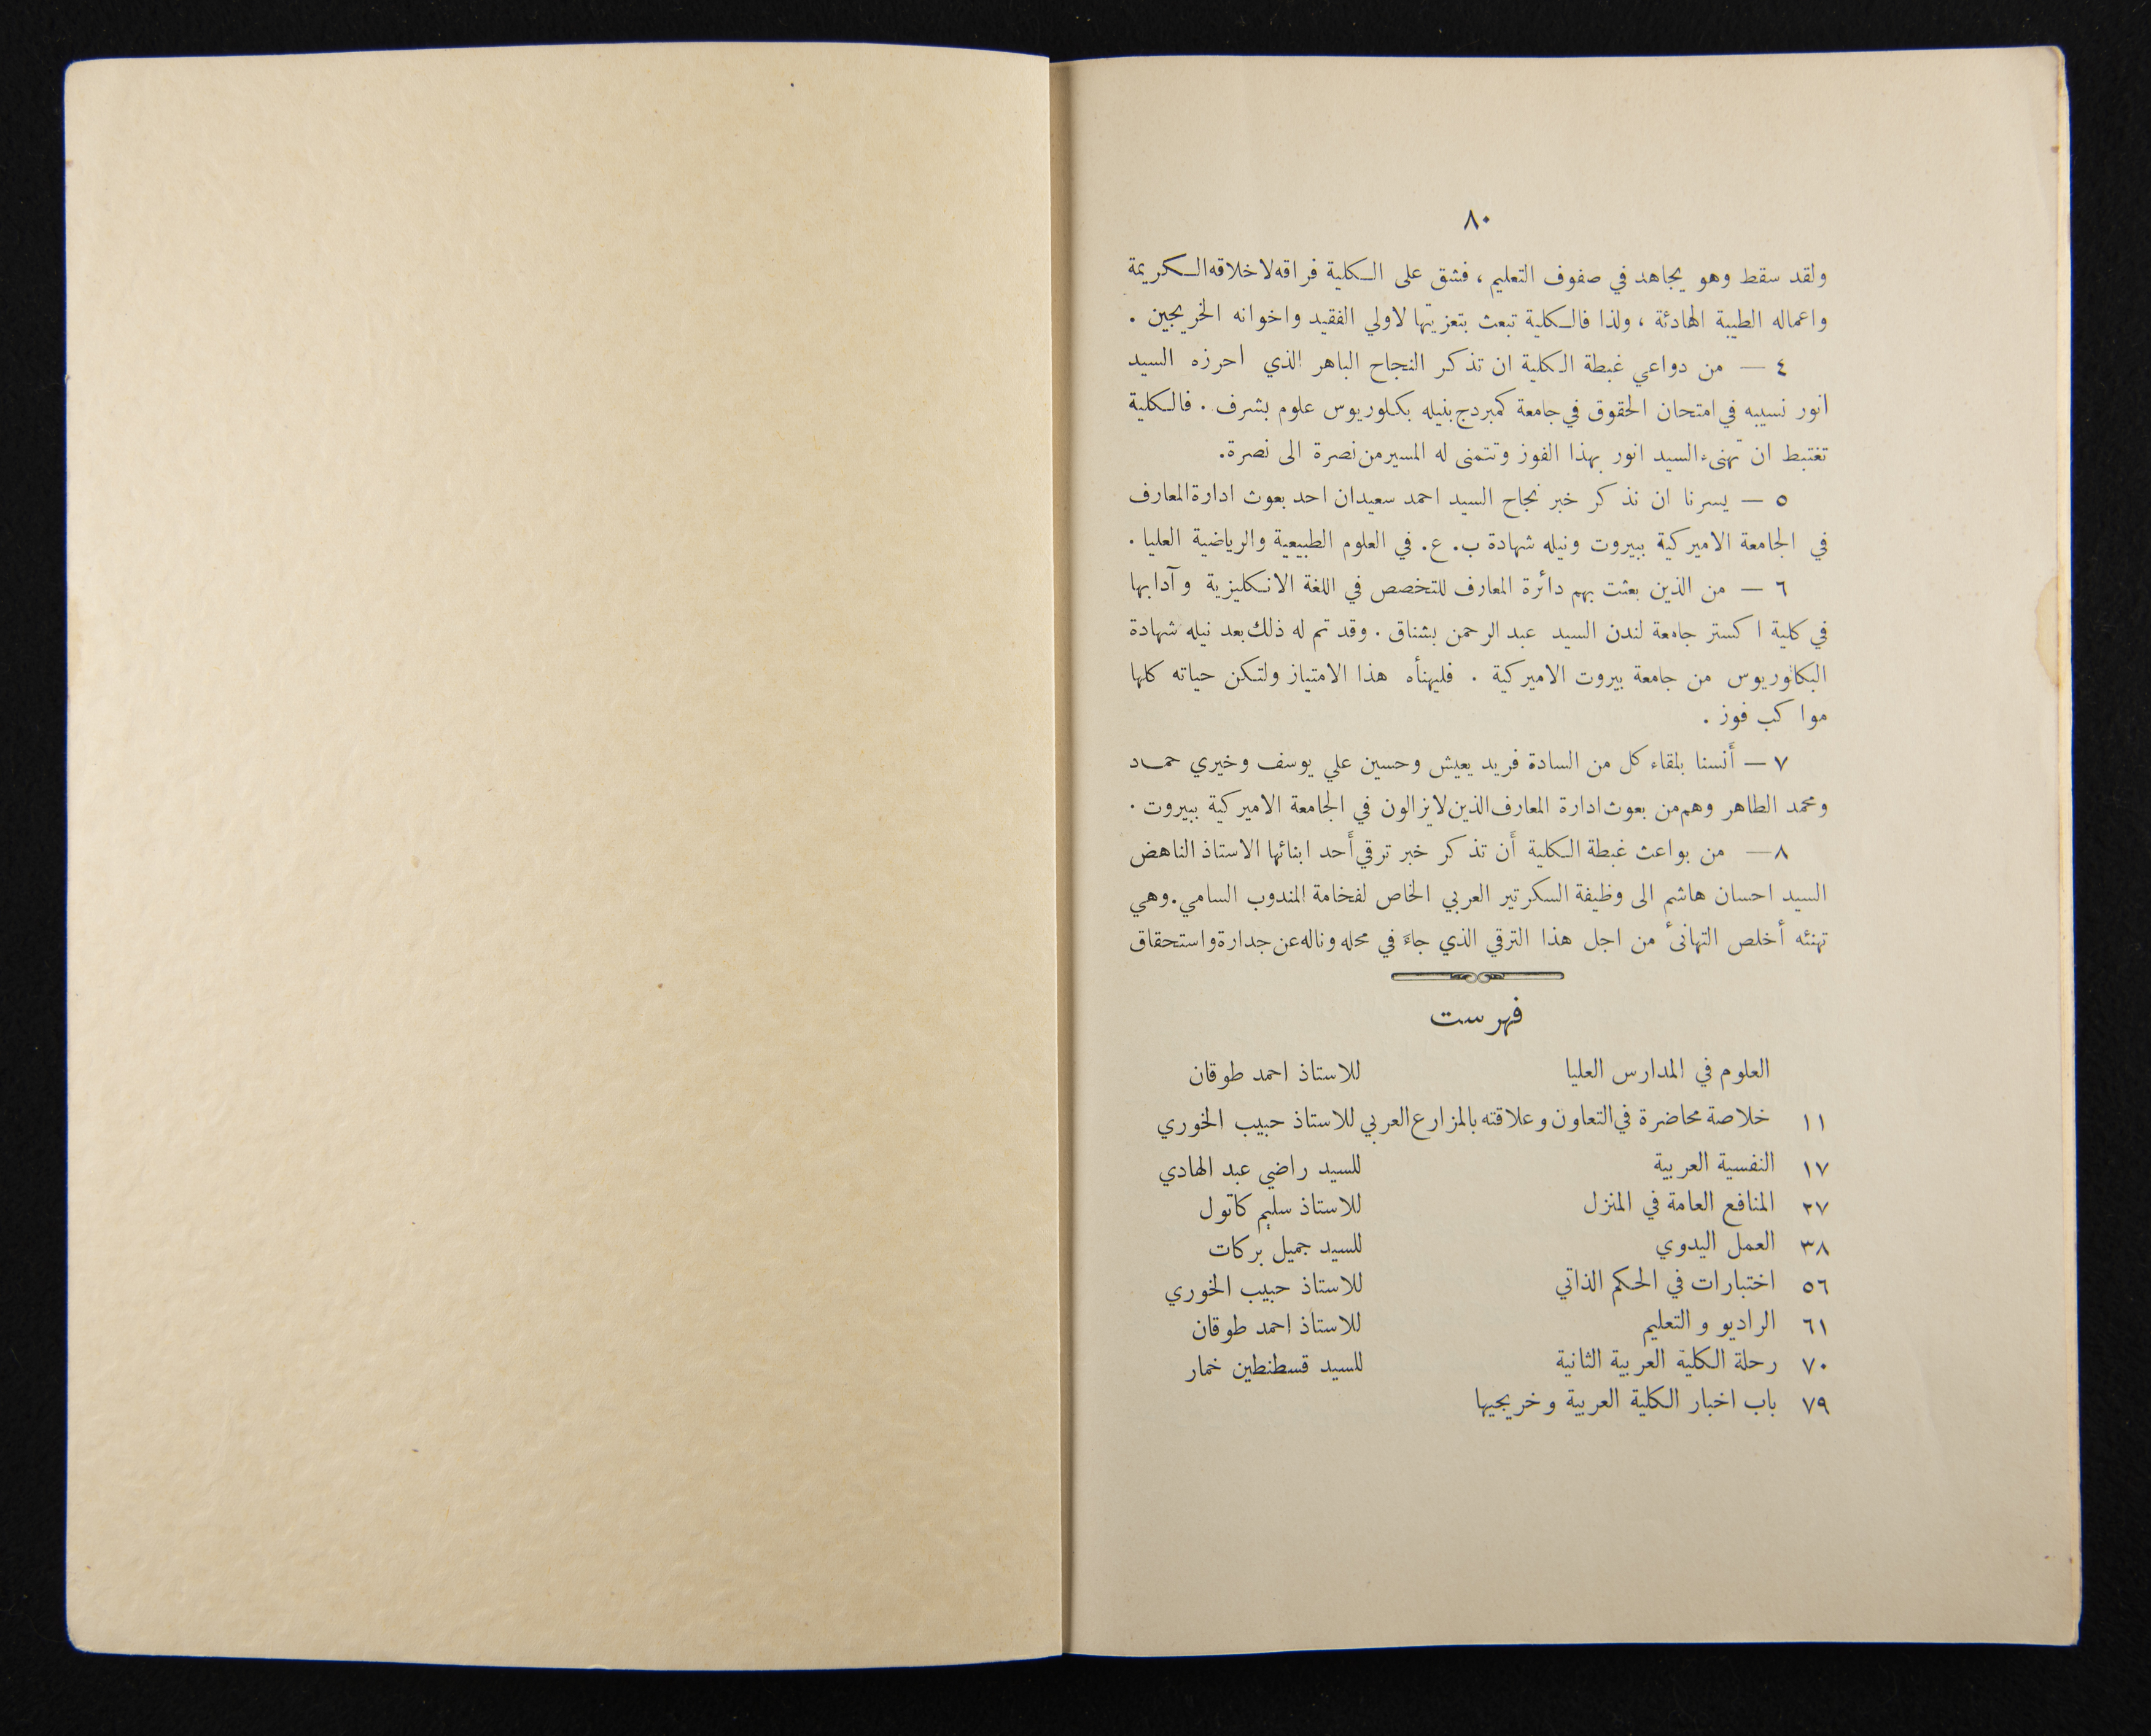 ٨٠
ولقد سقط وهو يجاهد في صفوف التعليم ، فشق على الكلية فراقه لاخلاقه الكريمة
واعماله الطيبة الهادئة ، ولذا فالكلية تبعث بتعزيتها لاولي الفقيد واخوانه الخريجين .
٤ — من دواعي غبطة الكلية ان تذكر النجاح الباهر الذي احرزه السيد
انور نسيبه في امتحان الحقوق في جامعة كمبردج بنيله بكلوريوس علوم بشرف . فالكلية
تغتبط ان تهنىء السيد انور بهذا الفوز وتتمنى له المسير من نصرة الى نصرة.
٥ — يسرنا ان نذكر خبر نجاح السيد احمد سعيدان احد بعوث ادارة المعارف
في الجامعة الاميركية ببيروت ونيله شهادة ب. ع. في العلوم الطبيعية والرياضية العليا .
٦ — من الذين بعثت بهم دائرة المعارف للتخصص في اللغة الانكليزية وآدابها
في كلية اكستر جامعة لندن السيد عبد الرحمن بشناق . وقد تم له ذلك بعد نيله شهادة
البكالوريوس من جامعة بيروت الاميركية . فليهنأه هذا الامتياز ولتكن حياته كلها
مواكب فوز .
٧ — أنسنا بلقاء كل من السادة فريد يعيش وحسين علي يوسف وخيري حماد
ومحمد الطاهر وهم من بعوث ادارة المعارف الذين لا يزالون في الجامعة الاميركية ببيروت .
٨ — من بواعث غبطة الكلية أن تذكر خبر ترقي أحد ابنائها الاستاذ الناهض
السيد احسان هاشم الى وظيفة السكرتير العربي الخاص لفخامة المندوب السامي. وهي
تهنئه أخلص التهانئ من اجل هذا الترقي الذي جاء في محله وناله عن جدارة واستحقاق
فهرست
العلوم في المدارس العليا للاستاذ احمد طوقان
١١ خلاصة محاضرة في التعاون وعلاقته بالمزارع العربي للاستاذ حبيب الخوري
١٧ النفسية العربية للسيد راضي عبد الهادي
٢٧ المنافع العامة في المنزل للاستاذ سليم كاتول
٣٨ العمل اليدوي للسيد جميل بركات
٥٦ اختبارات في الحكم الذاتي للاستاذ حبيب الخوري
٦١ الراديو والتعليم للاستاذ احمد طوقان
٧٠ رحلة الكلية العربية الثانية للسيد قسطنطين خمار
٧٩ باب اخبار الكلية العربية وخريجيها